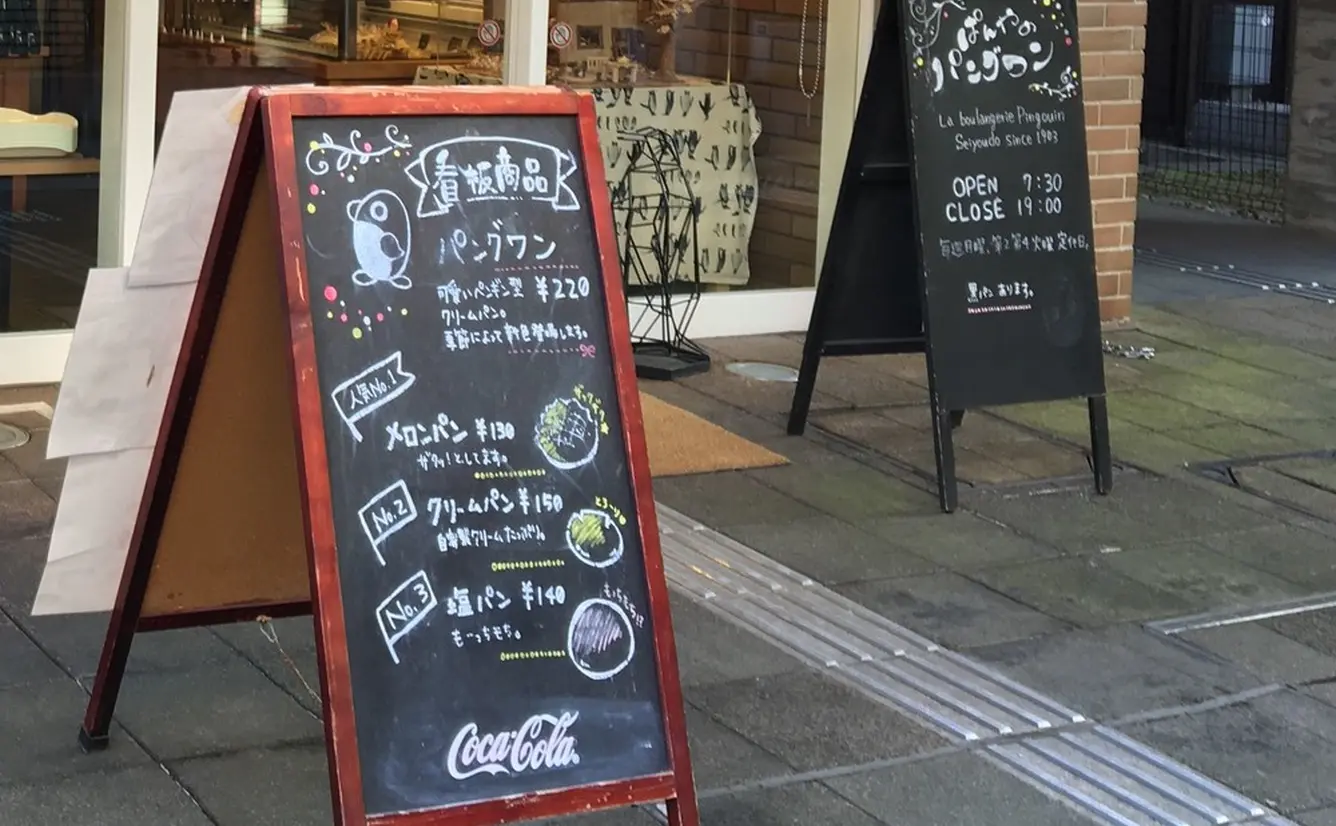 看板商品
パングワン
可愛いペンギン型 ¥220
クリームパン。
季節によって新色登場します。
人気No.1
メロンパン ¥130
ザクッ!としてます。
No.2
クリームパン ¥150
自家製クリームたっぷり。
とろ〜り
No.3
塩パン ¥140
もっちもち。
もちもち!?
Coca-Cola
ぱんやの
パングワン
La boulangerie Pingouin
Seiyoudo since 1903
OPEN 7:30
CLOSE 19:00
毎週月曜、第2第4火曜 定休日。
黒パン あります。